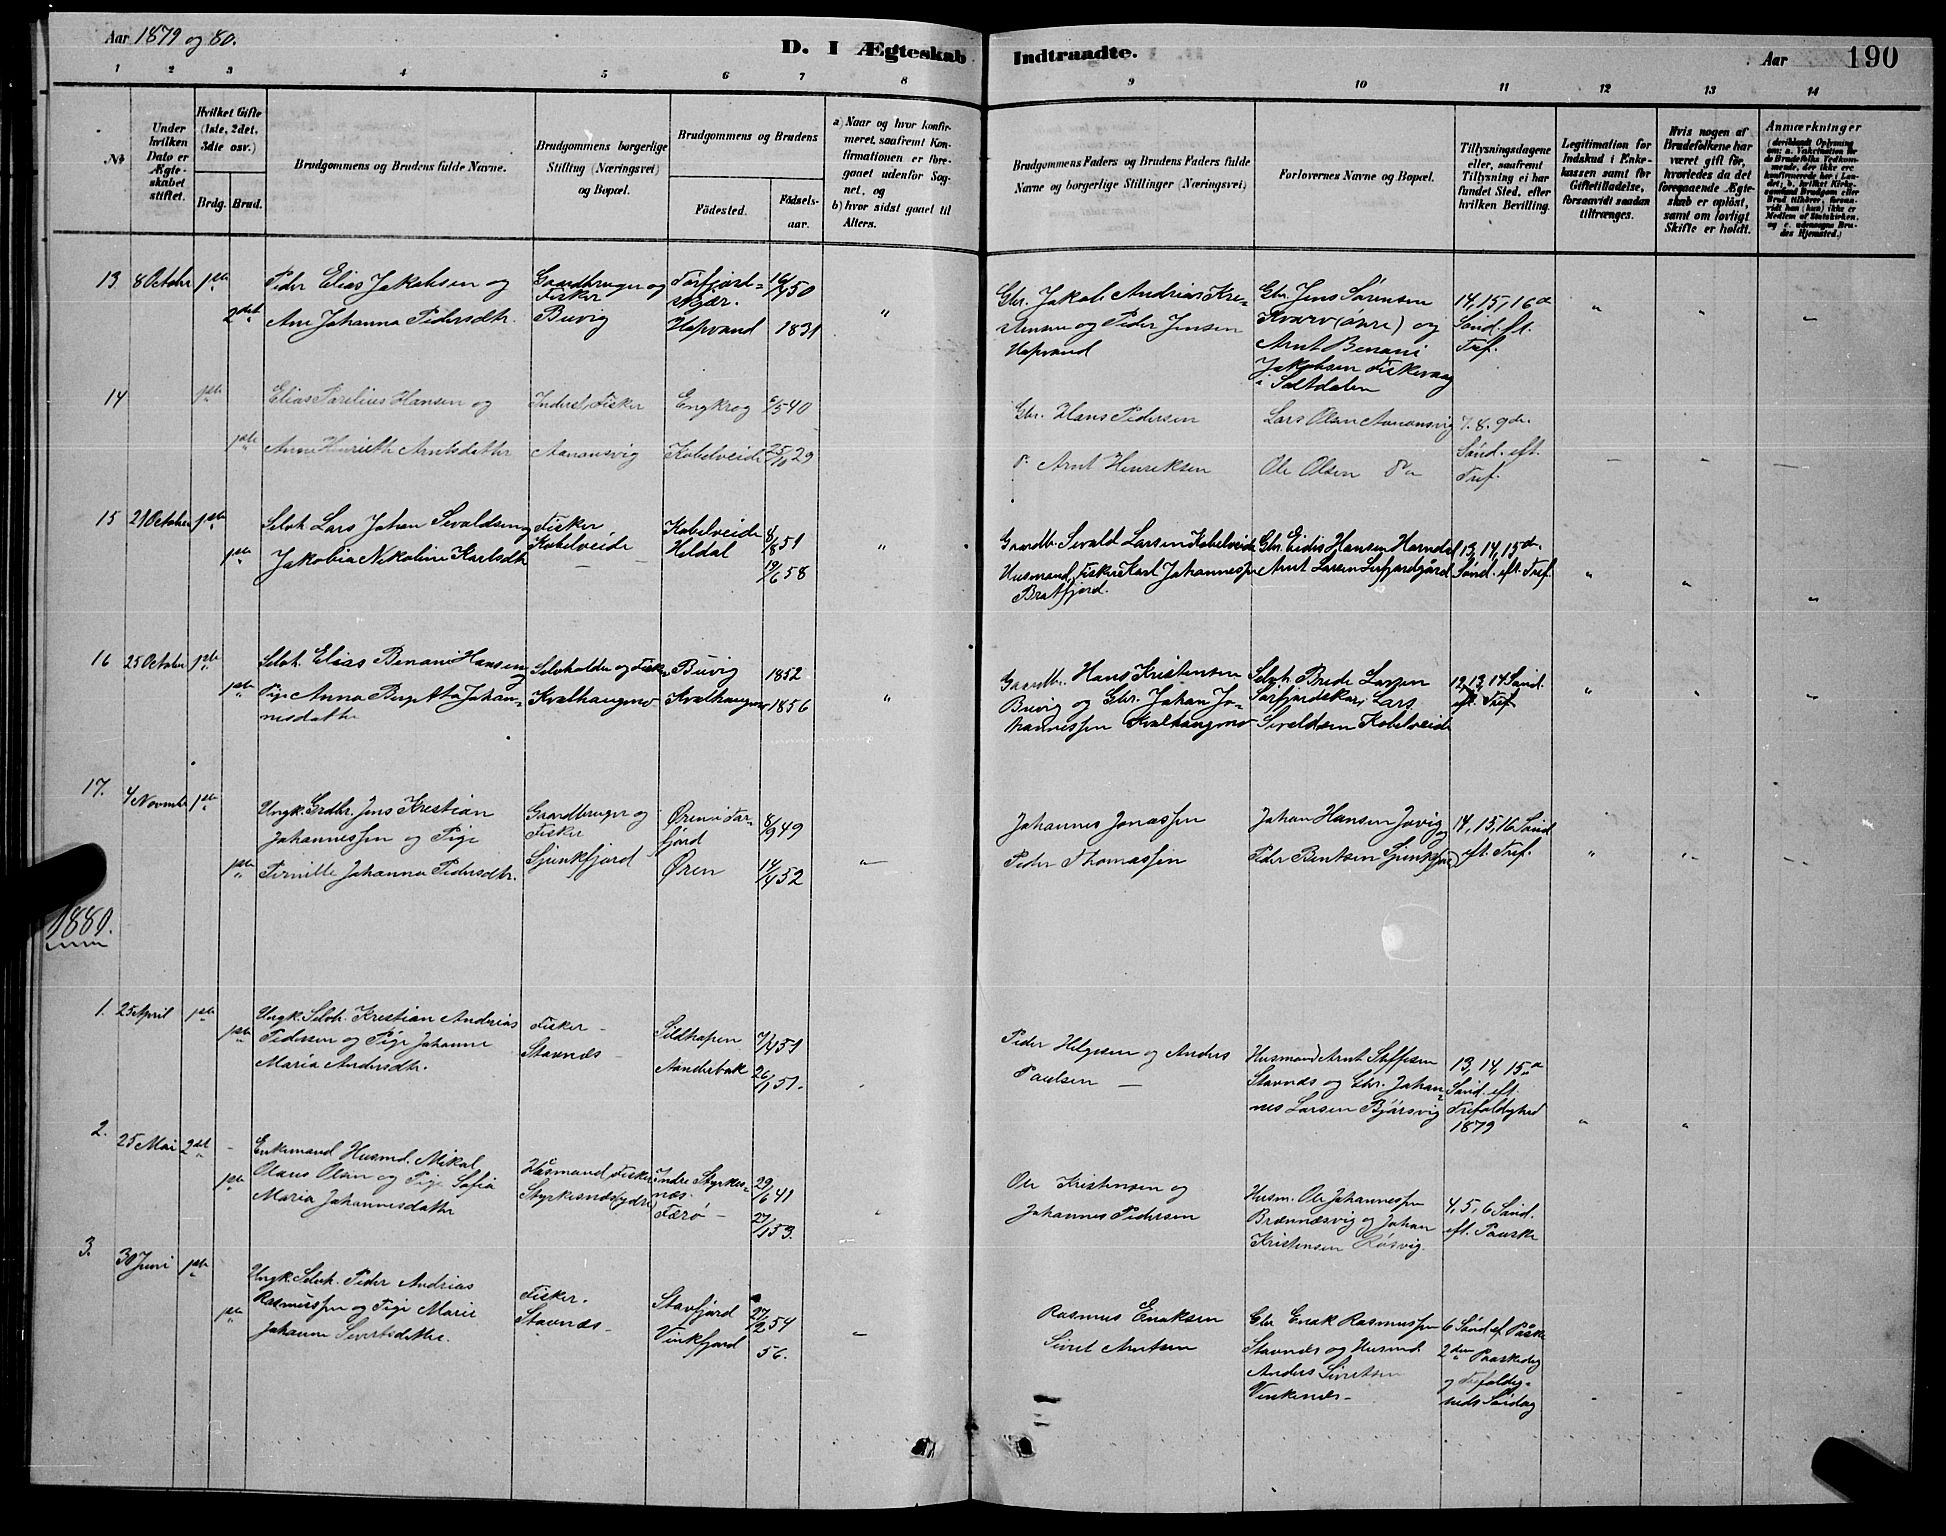 Aar 1879 og 80.
D. I Ægteskab Indtraadte.
Aar 190
1 2 3 4 5 6 7 8 9 10 11 12 13 14
No
Under hvilken Dato er Ægteskabet stiftet.
Hvilket Gifte (1ste, 2det, 3die osv.)
Brdg. Brud.
Brudgommens og Brudens fulde Navne.
Brudgommens borgerlige Stilling (Næringsvei) og Bopæl.
Brudgommens og Brudens
Födested. Födselsaar.
a) Naar og hvor konfirmeret, saafremt Konfirmationen er foregaaet udenfor Sognet, og
b) hvor sidst gaaet til Alters.
Brudgommens Faders og Brudens Faders fulde Navne og borgerlige Stillinger (Næringsvei)
Forlovernes Navne og Bopæl.
Tillysningsdagene eller, saafremt Tillysning ei har fundet Sted, efter hvilken Bevilling.
Legitimation for Indskud i Enkekassen samt for Giftetilladelse, forsaavidt saadan tiltrænges.
Hvis nogen af Brudefolkene har været gift før, hvorledes da det foregaaende Ægteskab er opløst, samt om lovligt Skifte er holdt.
Anmærkninger
13 8 Octobr 1ste
2det
Peder Elias Jakobsen og
Ane Johanna Pedersdtr.
Gaardbruger og
Fisker
Buvig
Hopvand 1831
Gbr. Jakob Andrias Kre-
stensen og Peder Jensen
Hopvand
Gbr. Jens Sørensen
Kvarv (øvre) og
Arnt Benoni
Jakobsen Fiskevaag
i Saltdalen
14, 15, 16de
Sønd. eft.
Tref.
14 1ste
1ste
Elias Parelius Hansen og
Anna Henriette Arntsdatter
Inderst, Fisker
Aanonsvig
Engkrog
Kobelveide
Gbr. Hans Pedersen
do Arnt Henriksen
Lars Olsen Aanonsvig
Ole Olsen do
7. 8. 9de
Sønd. eft.
Tref.
15 21 October 1ste
1ste
Selvh. Lars Johan Sivaldsen og
Jakobia Nikoline Karlsdtr
Fisker
Kobelveide
Kobelveide 8/8 51
Heldal 19/6 58
Gaardb. Sivald Larsen Kobelveide
Husmand, Fisker Karl Johannessen
Bratfjord.
Gbr. Eidis Hansen Horndal
Arnt Larsen Leifjordgård
13, 14, 15de
Sønd. eft. Tref.
16 25 October 1ste
1ste
Selvh. Elias Benoni Hansen og
Pige Anna Bergitta Johan-
nesdatter
Selvholder og Fisker
Kvalhaugmo
Buvig 1852
Kvalhaugmo 1856
Gaardb. Hans Kristensen
Buvig og Gbr. Johan Jo-
hannessen Kvalhaugmo
Selvh. Brede Larsen
Sørfjordskar, Lars
Siveldsen Kobelveide
12, 13, 14 Sønd.
eft. Tref
17. 4 Novembr 1ste
1ste
Ungk. Grdbr. Jens Krestian
Johannessen og Pige
Pernille Johanna Pedersdtr.
Gaardbruger og
Fisker
Tjinkfjord
Øren i Tør-
fjord 8/9 49
Øren 52
Johannes Jonassen
Peder Thomassen
Johan Hansen Jøvig og
Peder Bentsen Tjinkfjord
14, 15, 16 Sønd
eft. Tref.
1880.
1. 25 April 1ste
1ste
Ungk. Selvh. Krestian Andrias
Pedersen og Pige Johanne
Maria Andersdtr.
Fisker
Stavnæs
Sildhopen
Aanderbak
Peder Helgesen og Anders
Paulsen
Husmand Arnt Steffesen
Stavnæs og Gbr. Johan-
nes Larsen Bjørsvig
13, 14, 15de
Sønd. eft.
Trefoldighed
1879
2. 25 Mai 2det
1ste
Enkemand Husmd. Mikal
Olaus Olsen og Pige Sofia
Maria Johannesdatter
Husmand, Fisker
Styrkesnæs (ydre)
Indre Styrkes-
næs 29/6 41
Færø 53.
Ole Kristensen og
Johannes Pedersen
Husm. Ole Johannessen
Brænnæsvig og Johan
Kristensen Røsvig.
4, 5, 6 Sønd.
eft. Paaske
3. 30 Juni 1ste
1ste
Ungk. Selvh. Peder Andrias
Rasmussen og Pige Marie
Johanna Sivertsdatter.
Fisker.
Stavnæs
Stavfjord 27/2 54
Vinkfjord 56.
Rasmus Enoksen
Sivert Arntsen
Gbr. Enok Rasmussen
Stavnæs og Husmd.
Anders Sivertsen
Vinkenæs
6 Sønd ef. Påske
2den Paaskedag
og Trefoldig-
heds Søndag